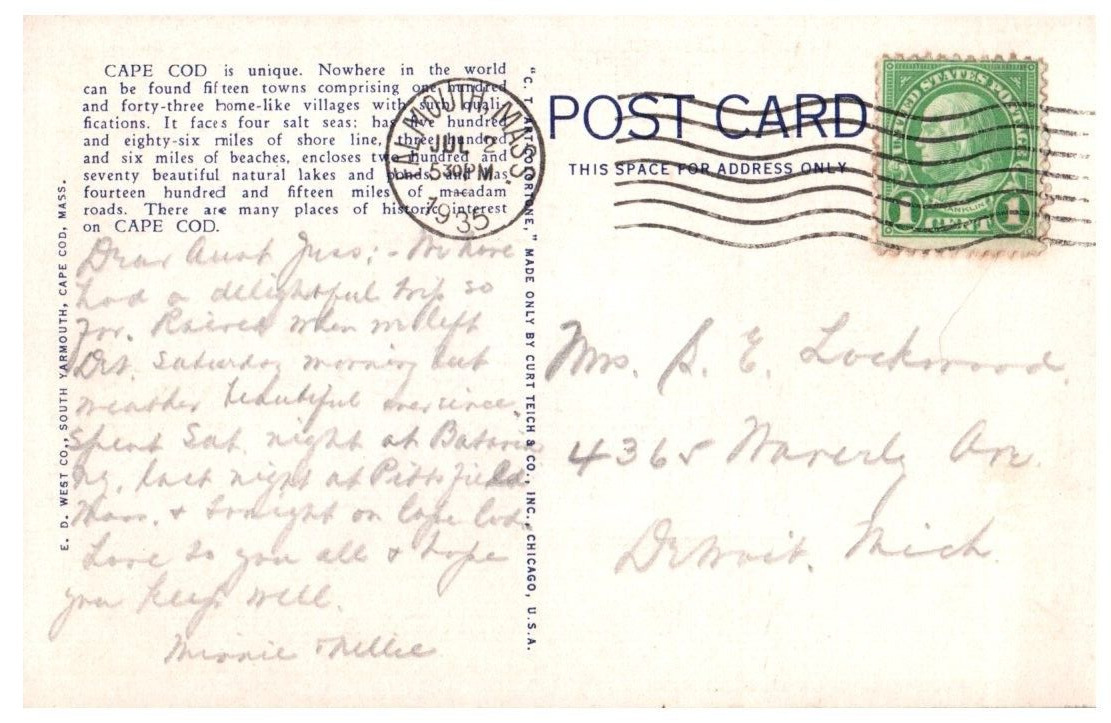 CAPE COD is unique. Nowhere in the world
can be found fifteen towns comprising one hundred
and forty-three home-like villages with such quali-
fications. It faces four salt seas; has five hundred
and eighty-six miles of shore line, three hundred
and six miles of beaches, encloses two hundred and
seventy beautiful natural lakes and ponds, and has
fourteen hundred and fifteen miles of macadam
roads. There are many places of historic interest
on CAPE COD.
Dear Aunt Juss; - We have
had a delightful trip so
far. Rained when we left
Det. Saturday morning but
weather beautiful ever since.
Spent Sat. night at Batavia
N.y. last night at Pittsfield
Mass. & tonight on Cape Cod.
Love to you all & hope
you keep well.
Minnie & Nellie
E. D. WEST CO., SOUTH YARMOUTH, CAPE COD, MASS.
"C. T. ART-COLORTONE," MADE ONLY BY CURT TEICH & CO., INC., CHICAGO, U.S.A.
FALMOUTH, MASS.
JUL 2
5 30 PM
1935
POST CARD
THIS SPACE FOR ADDRESS ONLY
UNITED STATES POSTAGE
FRANKLIN
1 CENT 1
Mrs. S. E. Lockwood.
4365 Waverly Ave.
Detroit. Mich.